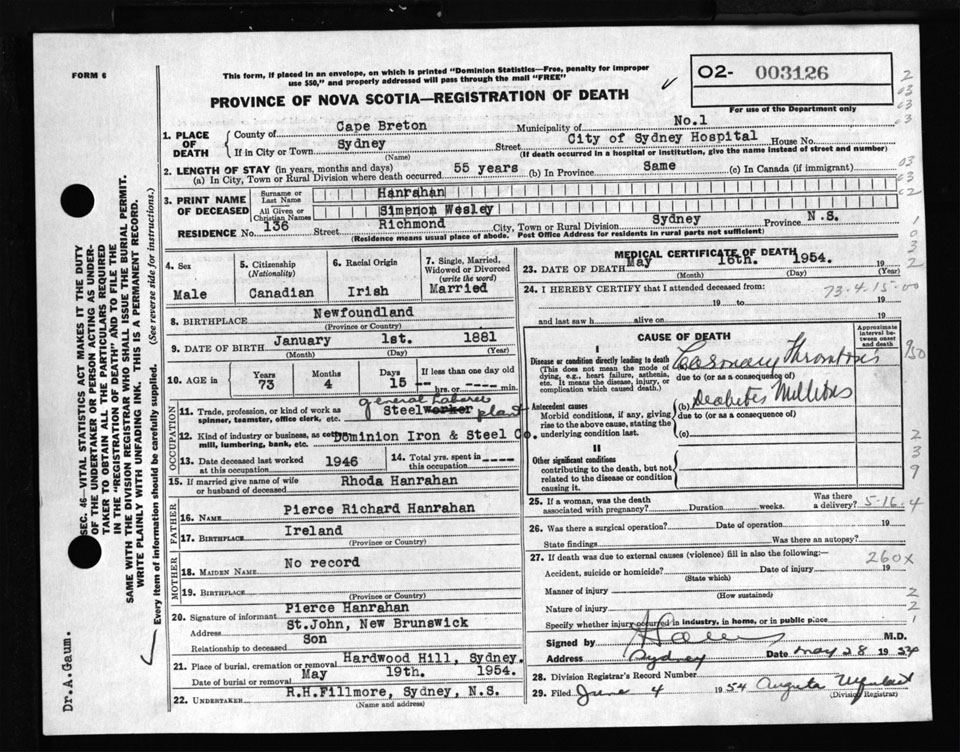 FORM 6
This form, if placed in an envelope, on which is printed "Dominion Statistics—Free, penalty for improper
use $50," and properly addressed will pass through the mail "FREE"
O2- 003126
For use of the Department only
PROVINCE OF NOVA SCOTIA—REGISTRATION OF DEATH
1. PLACE OF DEATH
County of Cape Breton Municipality of No.1
If in City or Town Sydney Street City of Sydney Hospital House No.
(Name) (If death occurred in a hospital or institution, give the name instead of street and number)
2. LENGTH OF STAY (in years, months and days)
(a) In City, Town or Rural Division where death occurred 55 years (b) In Province Same (c) In Canada (if immigrant)
3. PRINT NAME OF DECEASED
Surname or Last Name Hanrahan
All Given or Christian Names Simenon Wesley
RESIDENCE No. 136 Street Richmond City, Town or Rural Division Sydney Province N.S.
(Residence means usual place of abode. Post Office Address for residents in rural parts not sufficient)
4. Sex
Male
5. Citizenship
(Nationality)
Canadian
6. Racial Origin
Irish
7. Single, Married,
Widowed or Divorced
(write the word)
Married
8. BIRTHPLACE Newfoundland
(Province or Country)
9. DATE OF BIRTH January 1st. 1881
(Month) (Day) (Year)
10. AGE in
Years 73
Months 4
Days 15
If less than one day old
hrs. or min.
OCCUPATION
general laborer
11. Trade, profession, or kind of work as Steelworker plant
spinner, teamster, office clerk, etc.
12. Kind of industry or business, as cotton Dominion Iron & Steel Co.
mill, lumbering, bank, etc.
13. Date deceased last worked
at this occupation 1946
14. Total yrs. spent in
this occupation ----
15. If married give name of wife
or husband of deceased Rhoda Hanrahan
FATHER
16. NAME Pierce Richard Hanrahan
17. BIRTHPLACE Ireland
(Province or Country)
MOTHER
18. MAIDEN NAME No record
19. BIRTHPLACE
(Province or Country)
20. Signature of informant Pierce Hanrahan
Address St.John, New Brunswick
Relationship to deceased Son
21. Place of burial, cremation or removal Hardwood Hill, Sydney.
Date of burial or removal May 19th. 1954.
22. UNDERTAKER R.H.Fillmore, Sydney, N.S.
(Name and address)
MEDICAL CERTIFICATE OF DEATH
23. DATE OF DEATH May 16th. 1954. 19
(Month) (Day) (Year)
24. I HEREBY CERTIFY that I attended deceased from:
73-4-15-00
19 to 19
and last saw h alive on 19
CAUSE OF DEATH
Approximate
interval be-
tween onset
and death
I
Disease or condition directly leading to death
(This does not mean the mode of
dying, e.g., heart failure, asthenia,
etc. It means the disease, injury, or
complication which caused death.)
Coronary Thrombosis
due to (or as a consequence of)
Antecedent causes
Morbid conditions, if any, giving
rise to the above cause, stating the
underlying condition last.
(b) Deabites Millitus
due to (or as a consequence of)
(c)
II
Other significant conditions
contributing to the death, but not
related to the disease or condition
causing it.
25. If a woman, was the death
associated with pregnancy? Duration weeks. Was there
a delivery? 5-16-4
26. Was there a surgical operation? Date of operation 19
State findings Was there an autopsy?
27. If death was due to external causes (violence) fill in also the following:—
260X
Accident, suicide or homicide? Date of injury 19
(State which)
Manner of injury
(How sustained)
Nature of injury
Specify whether injury occurred in industry, in home, or in public place
Signed by M.D.
Address Sydney Date May 28 1954
28. Division Registrar's Record Number
29. Filed June 4 1954 Augusta
(Division Registrar)
SEC. 46—VITAL STATISTICS ACT MAKES IT THE DUTY
OF THE UNDERTAKER OR PERSON ACTING AS UNDER-
TAKER TO OBTAIN ALL THE PARTICULARS REQUIRED
IN THE "REGISTRATION OF DEATH" AND TO FILE THE
SAME WITH THE DIVISION REGISTRAR WHO SHALL ISSUE THE BURIAL PERMIT.
WRITE PLAINLY WITH UNFADING INK. THIS IS A PERMANENT RECORD.
Every item of information should be carefully supplied. (See reverse side for instructions.)
Dr.A.Gaum.